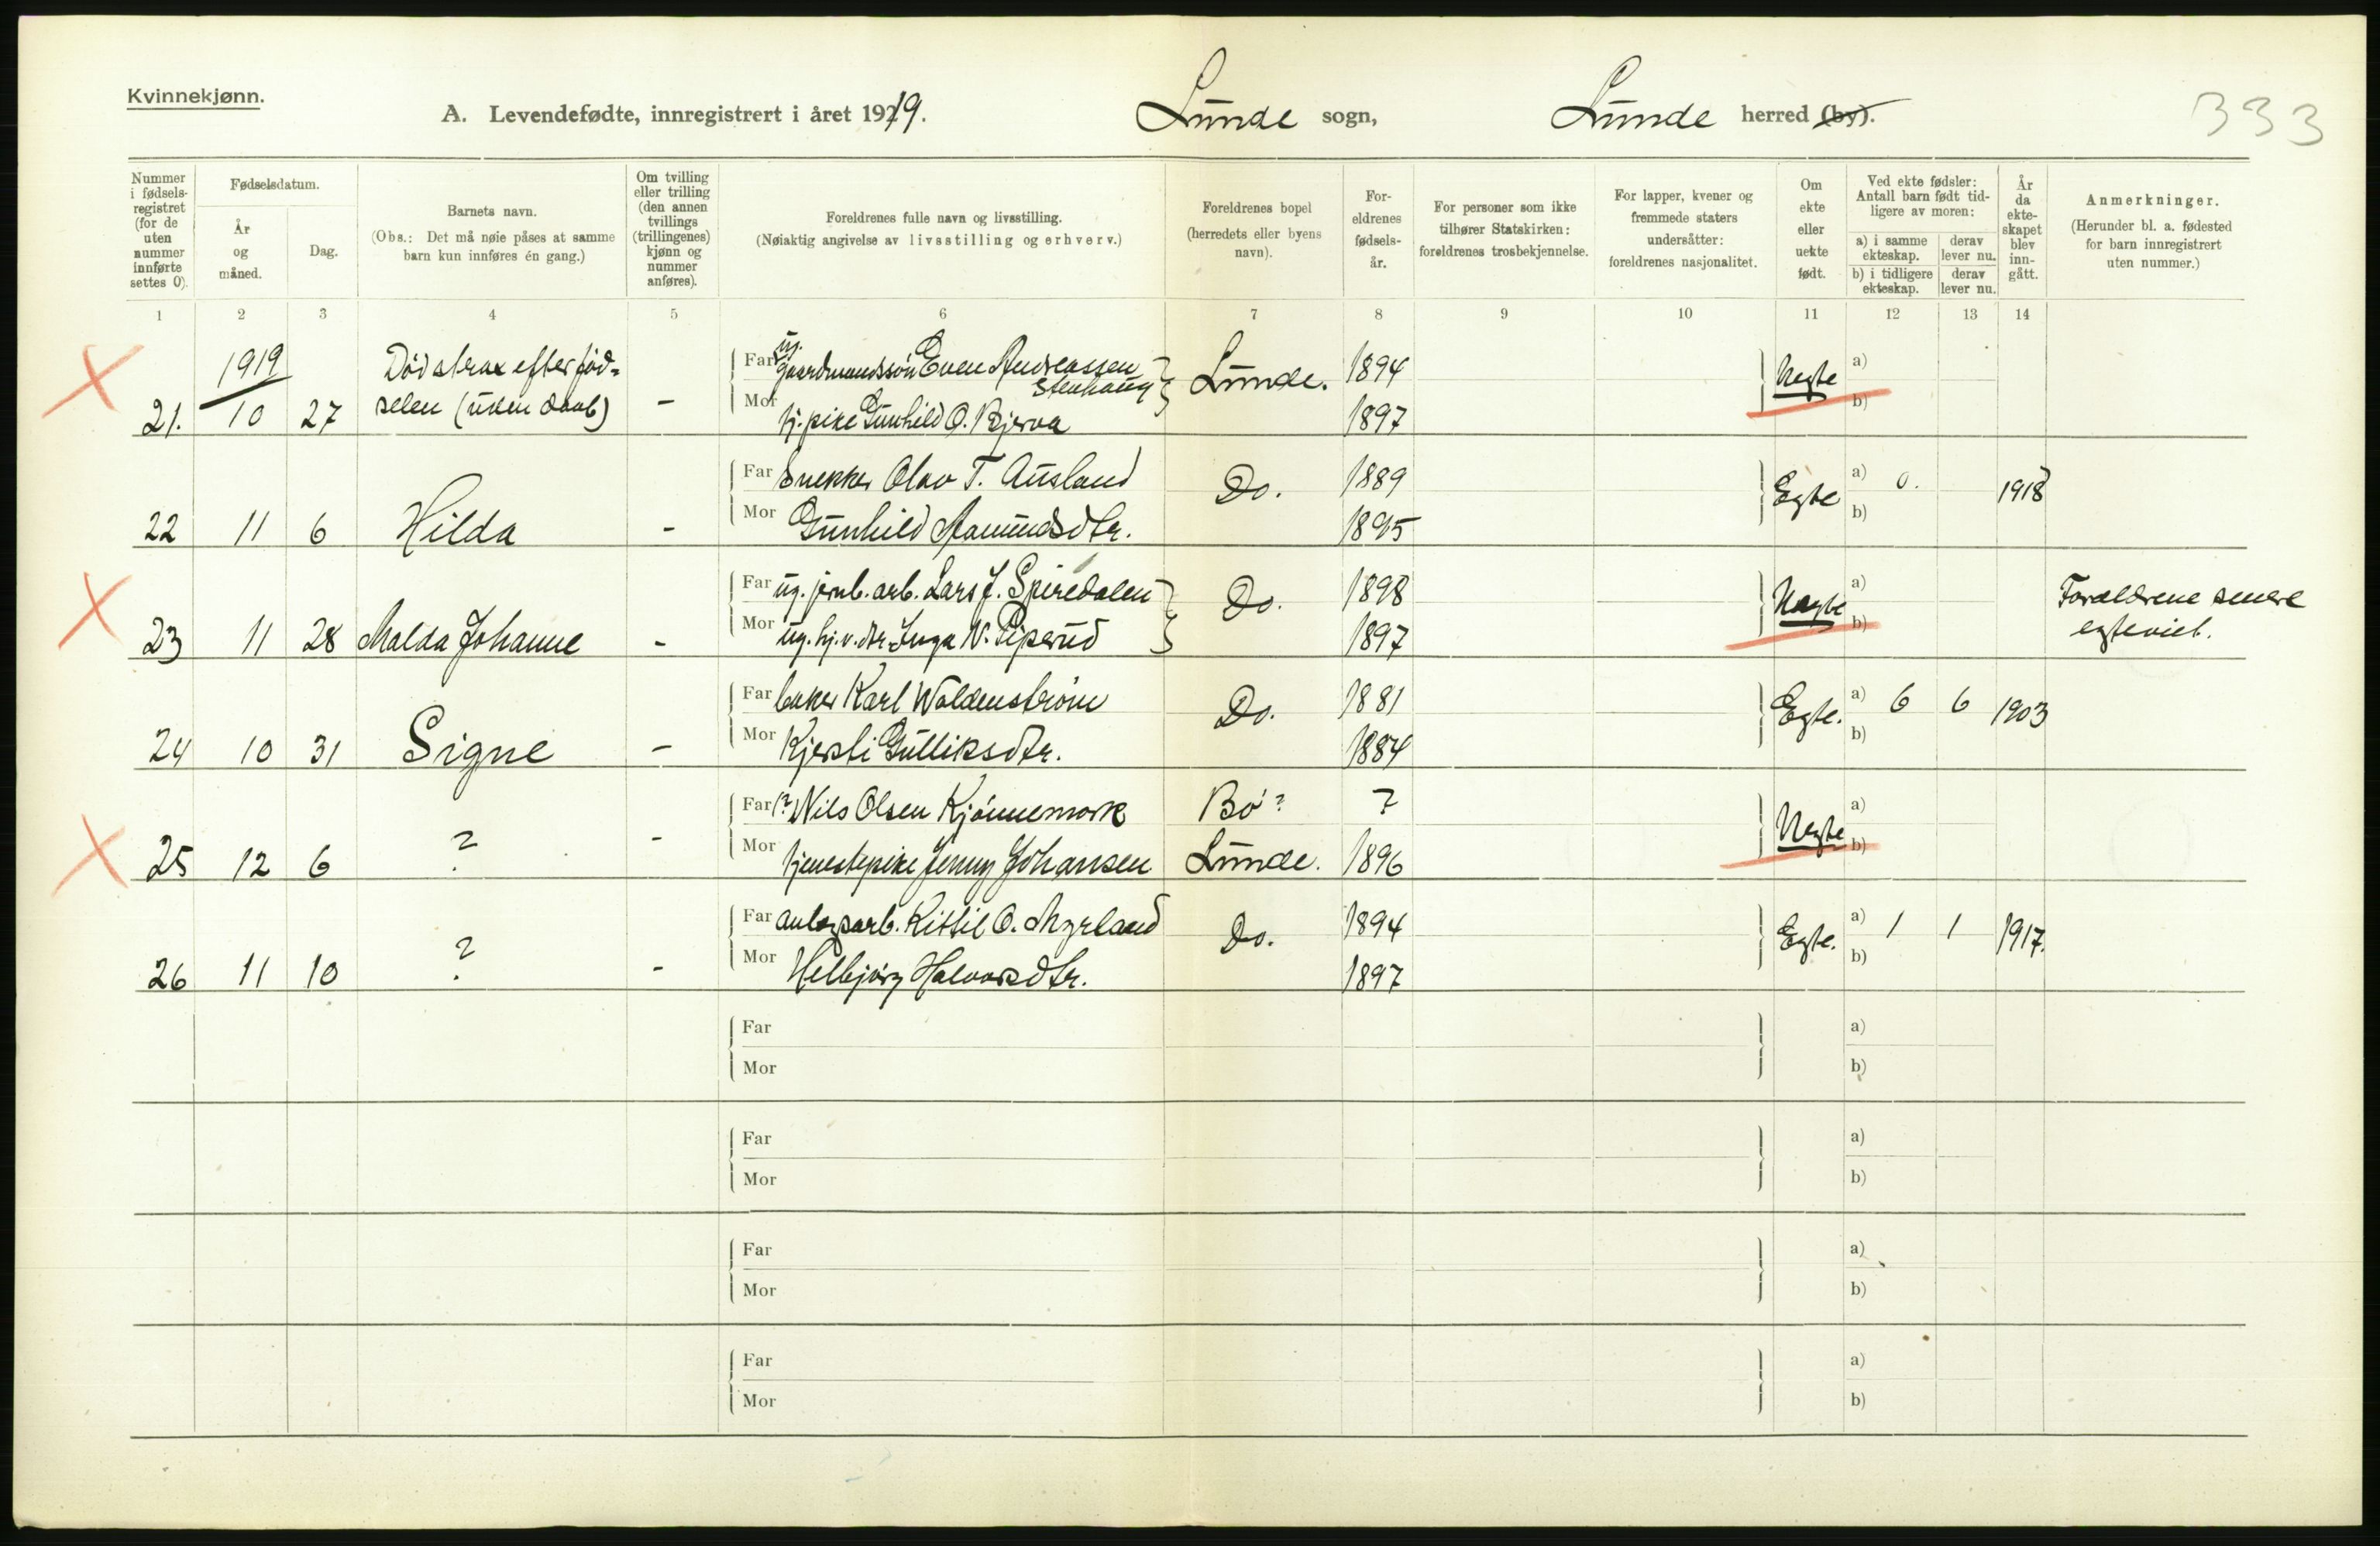 Kvinnekjønn.
A. Levendefødte, innregistrert i året 1919.
Lunde sogn,
Lunde herred (by).
333
Nummer i fødsels-registret (for de uten nummer innførte settes 0).
Fødselsdatum.
År og måned.
Dag.
Barnets navn.
(Obs.: Det må nøie påses at samme barn kun innføres én gang.)
Om tvilling eller trilling (den annen tvillings (trillingenes) kjønn og nummer anføres).
Foreldrenes fulle navn og livsstilling.
(Nøiaktig angivelse av livsstilling og erhverv.)
Foreldrenes bopel (herredets eller byens navn).
For-eldrenes fødsels-år.
For personer som ikke tilhører Statskirken: foreldrenes trosbekjennelse.
For lapper, kvener og fremmede staters undersåtter: foreldrenes nasjonalitet.
Om ekte eller uekte født.
Ved ekte fødsler: Antall barn født tid-ligere av moren:
a) i samme ekteskap.
derav lever nu.
b) i tidligere ekteskap.
derav lever nu.
År da ekte-skapet blev inn-gått.
Anmerkninger.
(Herunder bl. a. fødested for barn innregistrert uten nummer.)
1 2 3 4 5 6 7 8 9 10 11 12 13 14
1919
21. 10 27 Død strax efter fød-
selen (uten daab) -
Far ug. gaardmandssøn Even Andreassen
Stenhaug
Mor tj. pike Gunhild O. Bjerva
Lunde. 1894
1897
Uegte a)
b)
22 11 6 Hilda -
Far Snekker Olav T. Ausland
Mor Gunhild Aamundsdtr.
Do. 1889
1895
Egte a) 0. 1918
b)
23 11 28 Malda Johanne -
Far ug. jernb. arb. Lars J. Spiredalen
Mor ug. hj. v. dtr. Inga N. Piperud
Do. 1898
1897
Uegte a)
b)
Forældrene senere
egteviet.
24 10 31 Signe -
Far baker Karl Waldenstrøm
Mor Kjersti Gulliksdtr.
Do. 1881
1884
Egte. a) 6 6 1903
b)
25 12 6 ? -
Far (? Nils Olsen Kjønnemork
Mor tjenestepike Jenny Johansen
Bø? ?
Lunde. 1896
Uegte a)
b)
26 11 10 ? -
Far anlegsarb. Kittil O. Myrland
Mor Helbjørg Halvorsdtr.
Do. 1894
1897
Egte. a) 1 1 1917.
b)
Far a)
Mor b)
Far a)
Mor b)
Far a)
Mor b)
Far a)
Mor b)